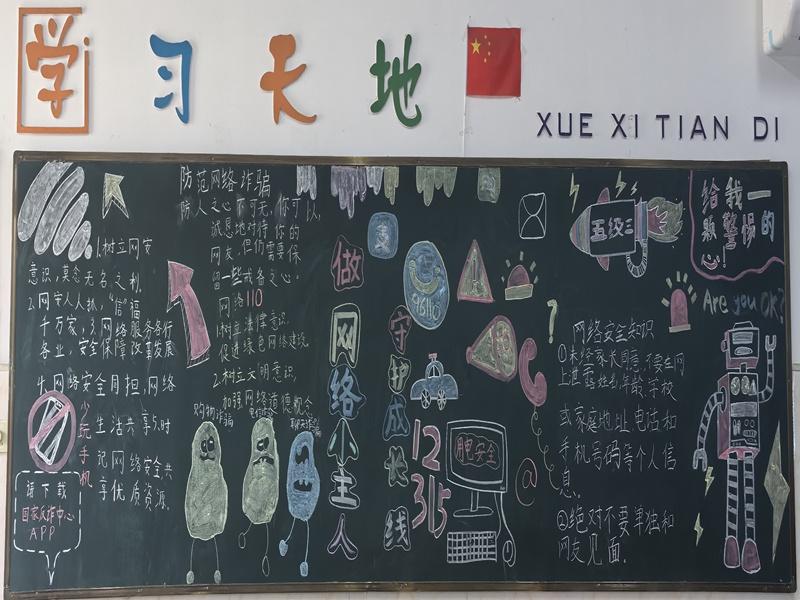 学习天地
XUE XI TIAN DI
1.树立网安
意识,莫念无名之利.
2.网安人人抓,"信"福
千万家,3.网络服务各行
各业,安全保障改革发展
4.网络安全同担,网络
生活共享5.时
记网络安全共
享优质资源.
少玩手机
请下载
国家反诈中心
APP
防范网络诈骗
防人之心不可无,你可以
诚恳地对待你的
网友,但仍需要保
留一些戒备之心.
网络110
1.树立法律意识,
促进绿色网络建设
2.树立文明意识,
加强网络道德观念
购物诈骗
做网络小主人
守护成长线
96110
12315
用电安全
@
五级三
给我一
贩警惕的
心!
Are you OK?
网络安全知识
①未经家长同意,不要在网
姓名,年龄,学校
或家庭地址,电话和
手机号码等个人信
息.
②绝对不要单独和
网友见面.